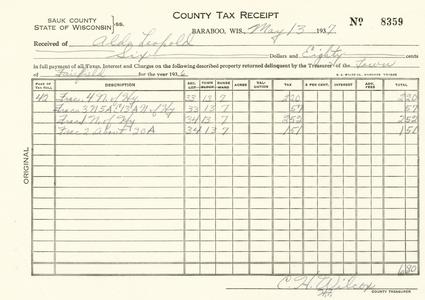 COUNTY TAX RECEIPT
SAUK COUNTY
STATE OF WISCONSIN } ss.
No 8359
BARABOO, WIS., May 13 1937.
Received of Aldo Leopold
Six Dollars and Eighty cents
in full payment of all Taxes, Interest and Charges on the following described property returned delinquent by the Treasurer of the Town
of Fairfield for the year 1936
PAGE OF TAX ROLL DESCRIPTION SEC. LOT TOWN BLOCK RANGE WARD ACRES VALUATION TAX % PER CENT. INTEREST ADV. FEE TOTAL
42 Frac. 4 N. of Hy 33 13 7 220 220
Frac. 3 N. of Hy 33 13 7 57 57
Frac. 1 N. of Hy 34 13 7 252 252
Frac. 2 About 20 A 34 13 7 151 151
ORIGINAL
6 80
H. Wilcox
COUNTY TREASURER